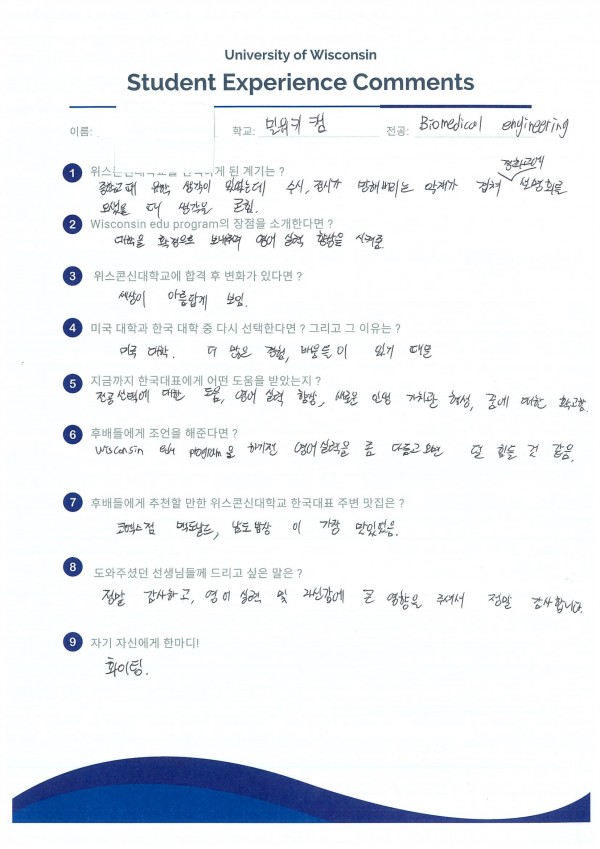 University of Wisconsin
Student Experience Comments
이름: 학교: 밀워키 캠 전공: Biomedical engineering
1 위스콘신대학교를 하게 된 계기는 ?
중학교 때 유학 생각이 있었는데 수시, 정시가 망해버리는 악재가 겹쳐 설명회를
오셨을 때 생각을 굳힘.
2 Wisconsin edu program의 장점을 소개한다면 ?
대학을 확정으로 보내주며 영어 실력 향상을 시켜줌.
3 위스콘신대학교에 합격 후 변화가 있다면 ?
세상이 아름답게 보임.
4 미국 대학과 한국 대학 중 다시 선택한다면 ? 그리고 그 이유는 ?
미국 대학. 더 많은 경험, 배움들이 있기 때문
5 지금까지 한국대표에게 어떤 도움을 받았는지 ?
전공 선택에 대한 도움, 영어 실력 향상, 새로운 인생 가치관 형성, 꿈에 대한 확고함.
6 후배들에게 조언을 해준다면 ?
Wisconsin edu program을 하기전 영어실력을 좀 다듬고오면 덜 힘들 것 같음.
7 후배들에게 추천할 만한 위스콘신대학교 한국대표 주변 맛집은 ?
코엑스점 맥도날드, 남도밥상 이 가장 맛있었음.
8 도와주셨던 선생님들께 드리고 싶은 말은 ?
정말 감사하고, 영어 실력 및 자신감에 큰 영향을 주셔서 정말 감사합니다.
9 자기 자신에게 한마디!
화이팅.